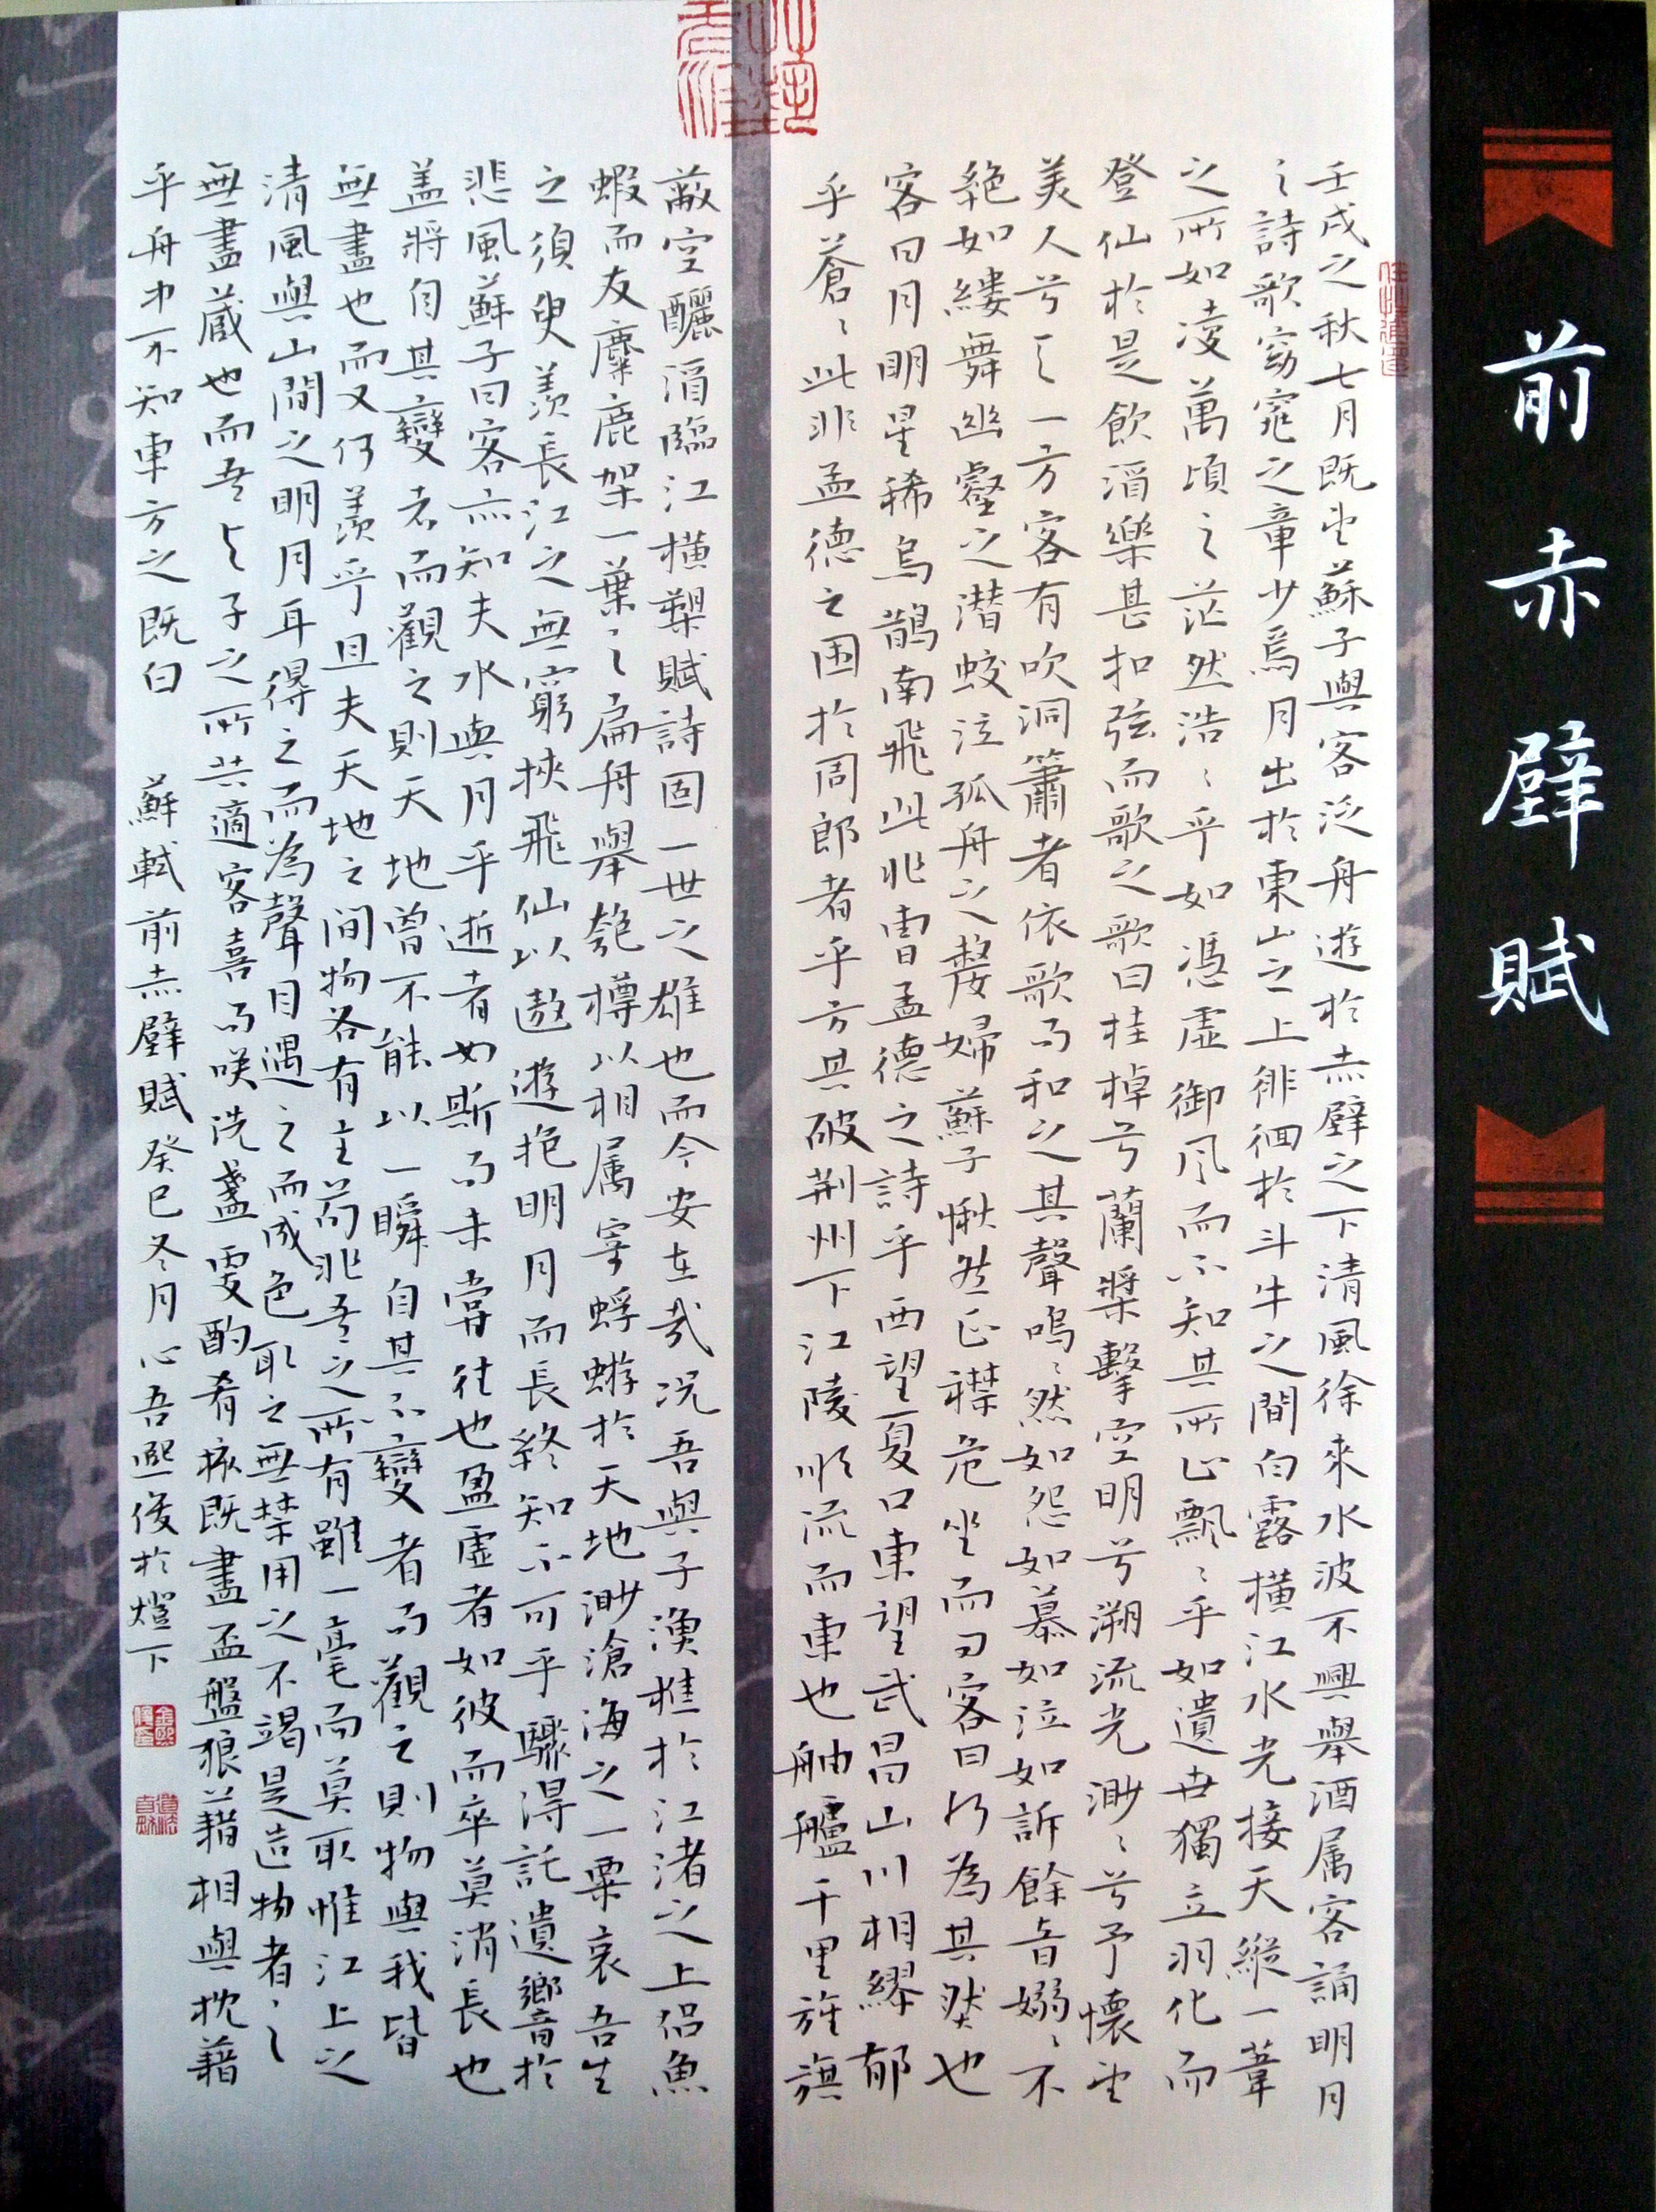 前赤壁賦
壬戌之秋七月既望蘇子與客泛舟遊於赤壁之下清風徐來水波不興舉酒属客誦明月
之詩歌窈窕之章少焉月出於東山之上徘徊於斗牛之間白露橫江水光接天縱一葦
之所如凌萬頃之茫然浩〻乎如馮虛御风而不知其所止飄〻乎如遺世獨立羽化而
登仙於是飲酒樂甚扣弦而歌之歌曰桂棹兮蘭槳擊空明兮溯流光渺〻兮予懷望
美人兮天一方客有吹洞簫者依歌而和之其聲嗚〻然如怨如慕如泣如訴餘音嫋〻不
絕如縷舞幽壑之潛蛟泣孤舟之嫠婦蘇子愀然正襟危坐而問客曰何為其然也
客曰月明星稀烏鵲南飛此非曹孟德之詩乎西望夏口東望武昌山川相繆郁
乎蒼〻此非孟德之困於周郎者乎方其破荆州下江陵順流而東也舳艫千里旌旗
蔽空釃酒臨江橫槊賦詩固一世之雄也而今安在哉况吾與子漁樵於江渚之上侣魚
蝦而友麋鹿架一葉之扁舟舉匏樽以相属寄蜉蝣於天地渺滄海之一粟哀吾生
之須臾羨長江之無窮挾飛仙以遨遊抱明月而長終知不可乎驟得託遺響於
悲風蘇子曰客亦知夫水與月乎逝者如斯而未嘗往也盈虛者如彼而卒莫消長也
盖將自其變者而觀之則天地曾不能以一瞬自其不變者而觀之則物與我皆
無盡也而又何羨乎且夫天地之间物各有主苟非吾之所有雖一毫而莫取惟江上之
清風與山間之明月耳得之而為聲目遇之而成色取之無禁用之不竭是造物者之
無盡藏也而吾與子之所共適客喜而咲洗盞更酌肴核既盡盃盤狼藉相與枕藉
乎舟中不知東方之既白 蘇軾前赤壁賦癸巳冬月心吾熙俊於燈下